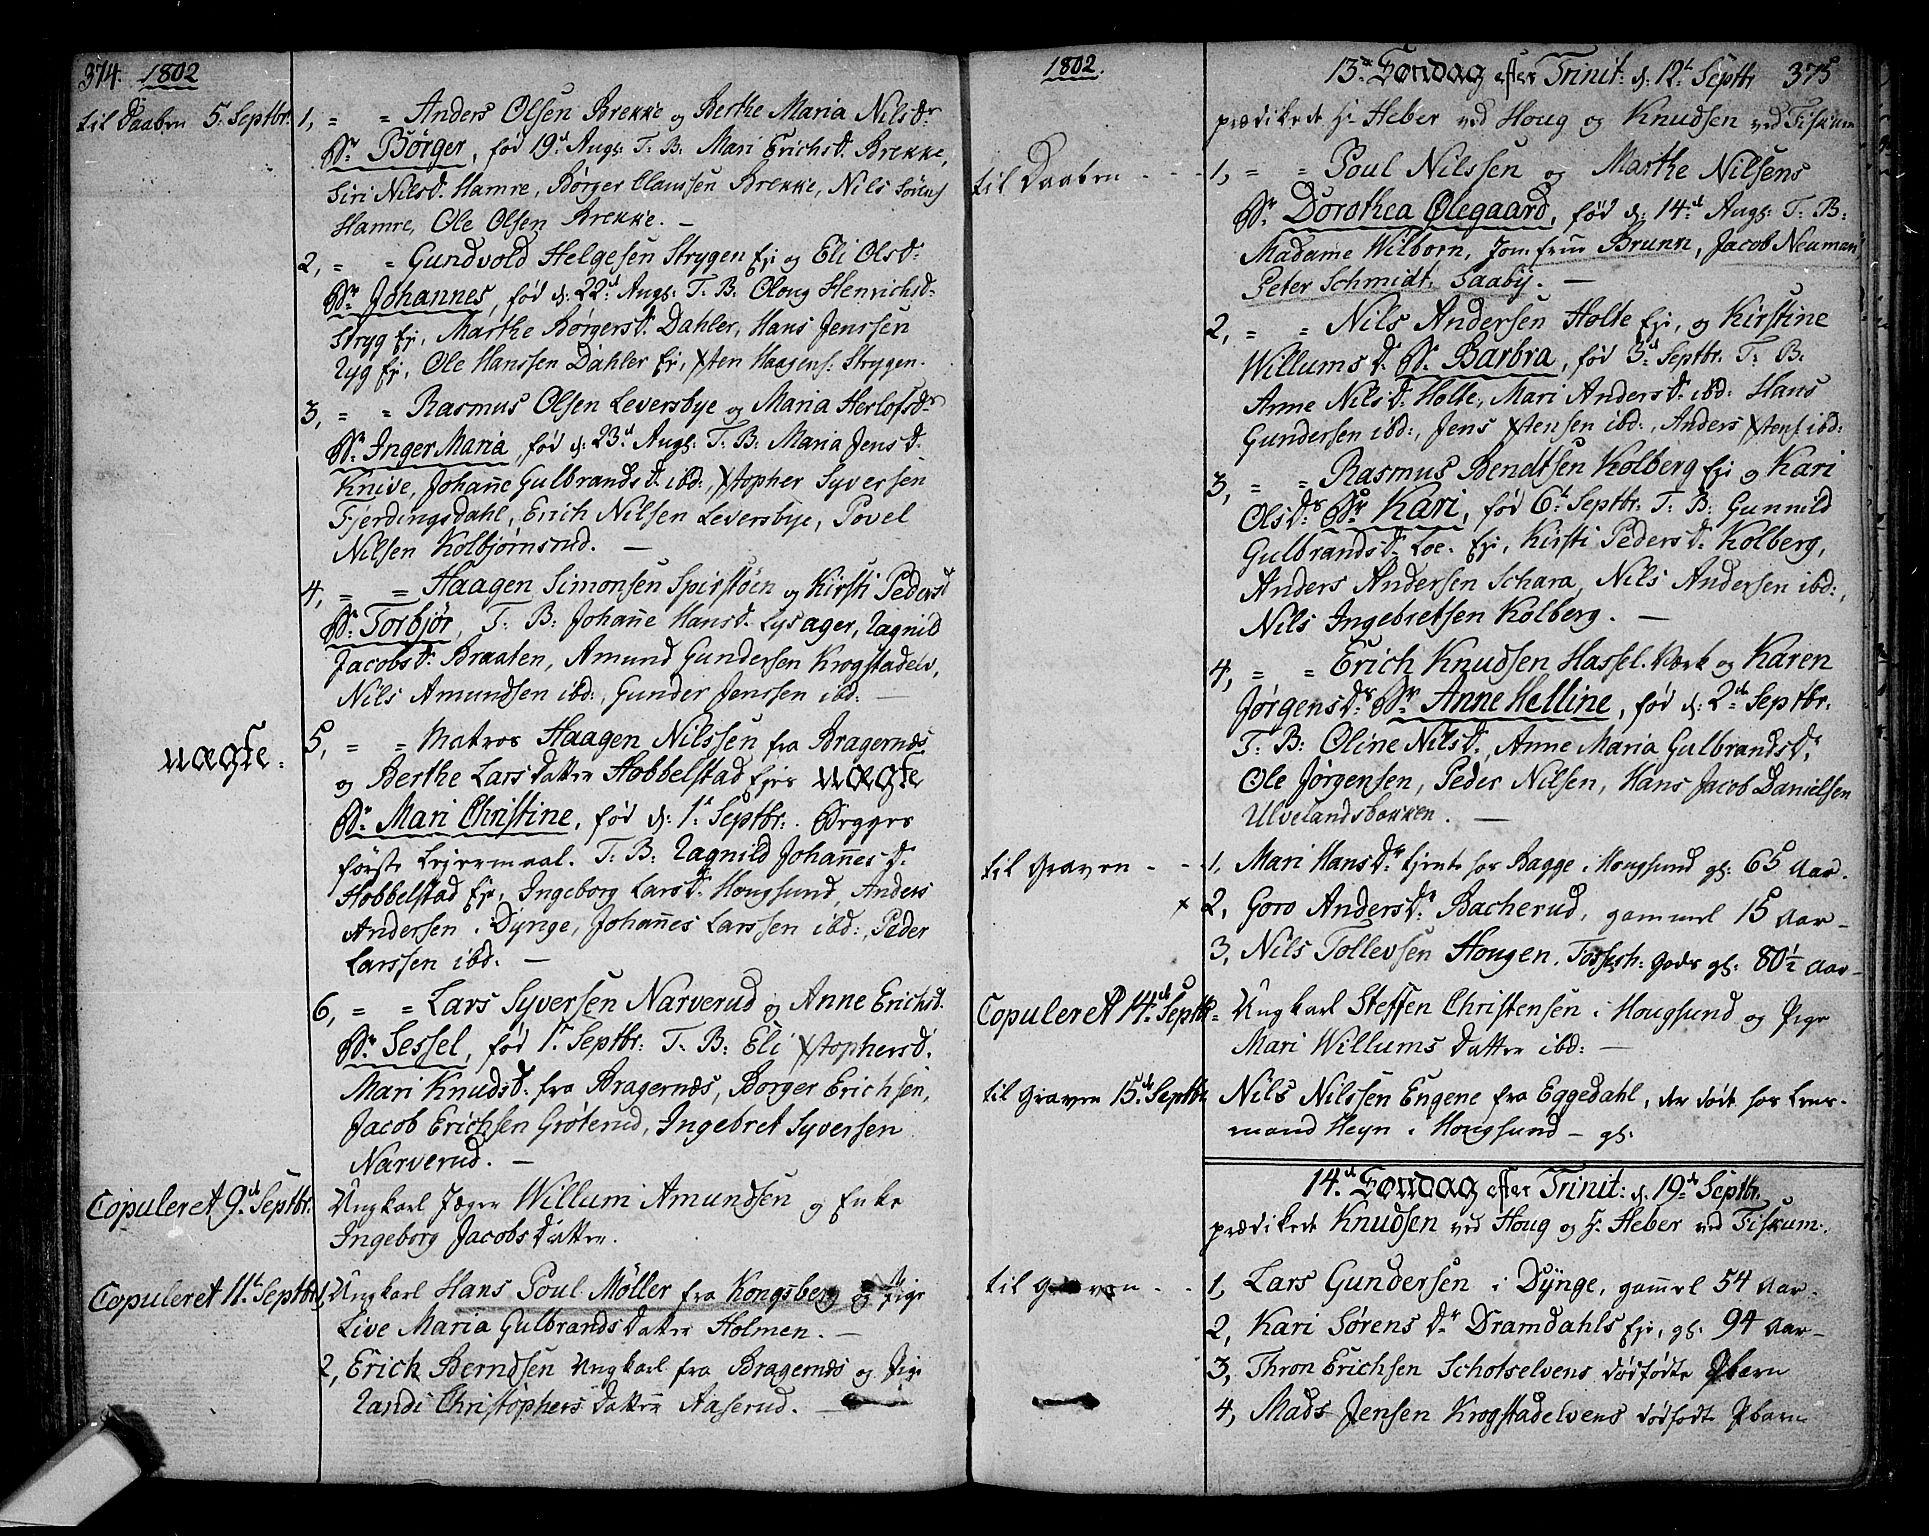 374. 1802
til Daaben 5. Septbr.
1, " " Anders Olsen Brekke og Berthe Maria Nilsdr
Br Børger, fød 19d Augs: T: B: Mari Erichsd. Brekke,
Siri Nilsd. Hamre, Børger Clausen Brekke, Nils Sörens
Hamre, Ole Olsen Brekke. –
2, " " Gundvold Helgesen Strygen Ej: og Eli Olsd:
Br Johannes, fød d: 22d Augs: T. B. Oloug Henrichsd.
Stryg Ej, Marthe Børgersd. Dahler, Hans Jenssen
Ryg Ej, Ole Hanssen Dahler Ej, Xsten Haagens: Strygen.
3, " " Rasmus Olsen Leversbye og Maria Herlofsdr
Br Inger Maria, fød d: 23d Augs: T. B: Maria Jensd.
Knive, Johañe Gulbrandsd. ibd:, Xstopher Syversen
Fjerdingsdahl, Erich Nilsen Leversbye, Povel
Nilsen Kolbjørnsrud. –
4, " " Haagen Simonsen Spirstøen og Kirsti Pedersd
Br Torbjør, T: B: Johañe Hansd. Lysager, Ragnild
Jacobsd. Braaten, Amund Gundersen Krogstadelv,
Nils Amundsen ibd:, Gunder Jenssen ibd: –
uægte.
5, " " Matros Haagen Nilssen fra Bragernæs
og Berthe Larsdatter Hobbelstad Ejes uægte
Br Mari Christine, fød d: 1ste Septbr. Begges
første Lejermaal. T. B: Ragnild Johañesd.
Hobbelstad Ej, Ingeborg Larsdr Hougsund, Anders
Andersen i Dynge, Johañes Larssen ibd:, Peder
Larssen ibd. –
6, " " Lars Syversen Narverud og Anne Erichsd.
Br Sessel, fød 1ste Septbr: T. B: Eli Xstophersd.
Mari Knudsd: fra Bragernæs, Børger Erichsen,
Jacob Erichsen Grøterud, Ingebret Syversen
Narverud. –
Copuleret 9de Septbr.
Ungkarl Jæger Willum Amundsen og Enke
Ingeborg Jacobsdatter.
Copuleret 11te Septbr
1, Ungkarl Hans Poul Møller fra Kongsberg og Pige
Live Maria Gulbrandsdatter Holmen. –
2, Erich Berndsen Ungkarl fra Bragernæs og Pige
Randi Christophersdatter Aaserud. –
1802.
13de Søndag efter Trinit: d. 12te Septbr 375
prædikede Hr Heber ved Houg og Knudsen ved Fiskum
til Daaben - - -
1, " " Poul Nilssen og Marthe Nilsens
Br Dorothea Olegaard, fød d: 14d Augs: T: B:
Madame Wilborn, Jomfrue Brunn, Jacob Neuman
Peter Schmidt, Saaby. –
2, " " Nils Andersen Holte Ej, og Kirstine
Willumsd. Br Barbra, fød 3d Septbr: T. B:
Anne Nilsd. Holte, Mari Andersd. ibd: Hans
Gundersen ibd:, Jens Xstensen ibd:, Anders Xstens ibd:
3, " " Rasmus Bendtsen Kolberg Ej og Kari
Olsdr Br Kari, fød 6te Septbr. T. B: Gunnild
Gulbrandsd. Loe. Ej, Kirsti Pedersd. Kolberg,
Anders Andersen Schara, Nils Andersen ibd:,
Nils Ingebretsen Kolberg. –
4, " " Erich Knudsen Hassel. Værk og Karen
Jørgensdr Br Anne Helline, fød d: 2de Septbr.
T. B: Oline Nilsd., Anne Maria Gulbrandsd.
Ole Jørgensen, Peder Nilsen, Hans Jacob Danielsen
Ulvelandsbakken. –
til Graven - - -
1, Mari Hansdr tjente hos Bagge i Hougsund gl: 65 Aar.
x 2, Goro Andersdr Bacherud, gammel 15 Aar –
3, Nils Tollevsen Hougen. Fossesh: Gods gl: 80½ Aar –
Copuleret 14de Septbr
Ungkarl Steffen Christensen i Hougsund og Pige
Mari Willumsdatter ibd: –
til Graven 15de Septbr
Nils Nilssen Engene fra Eggedahl, der døde hos Lens-
mand Heyn i Hougsund – gl:
14de Søndag efter Trinit: d. 19de Septbr.
prædikede Knudsen ved Houg og Hr Heber ved Fiskum.
til Graven - - -
1, Lars Gundersen i Dynge, gam̄el 54 Aar.
2, Kari Sørensdr Dramdahls Ej, gl: 94 Aar –
3, Thron Erichsen Schotselvens dødfødte Pbarn
4, Mads Jensen Krogstadelvens dødfødte Pbarn